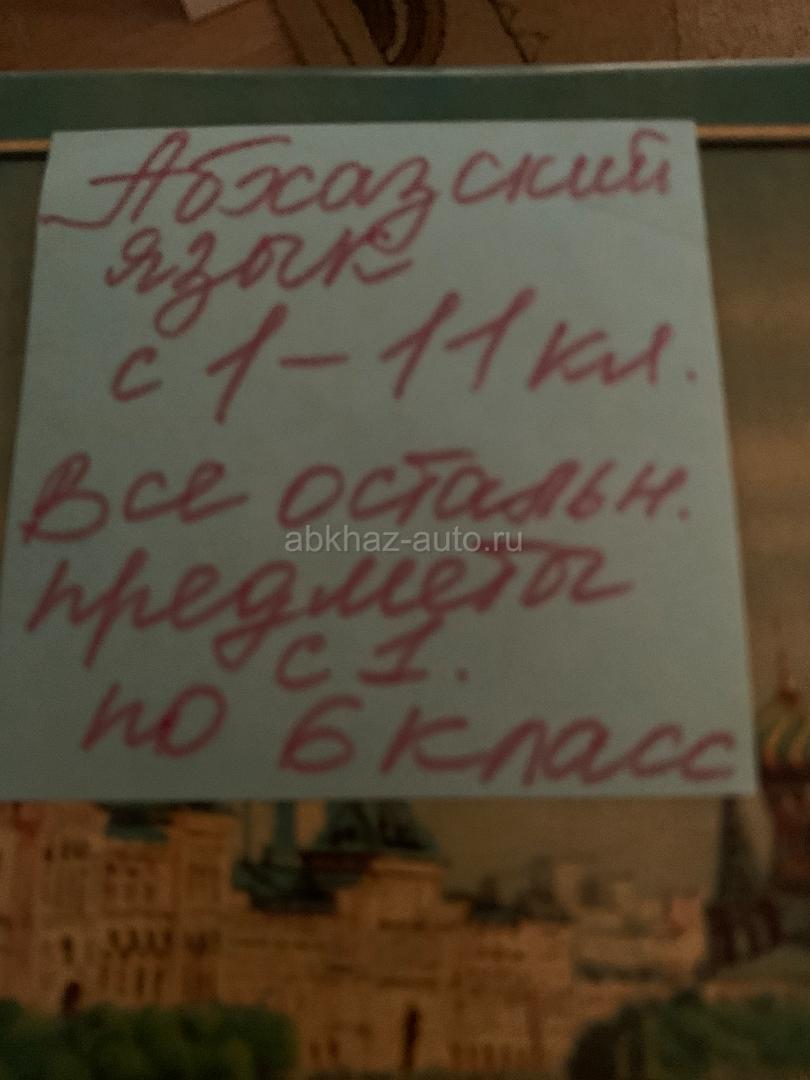 Абхазский
язык
с 1-11 кл.
Все остальн.
abkhaz-auto.ru
предметы
с 1.
по 6 класс